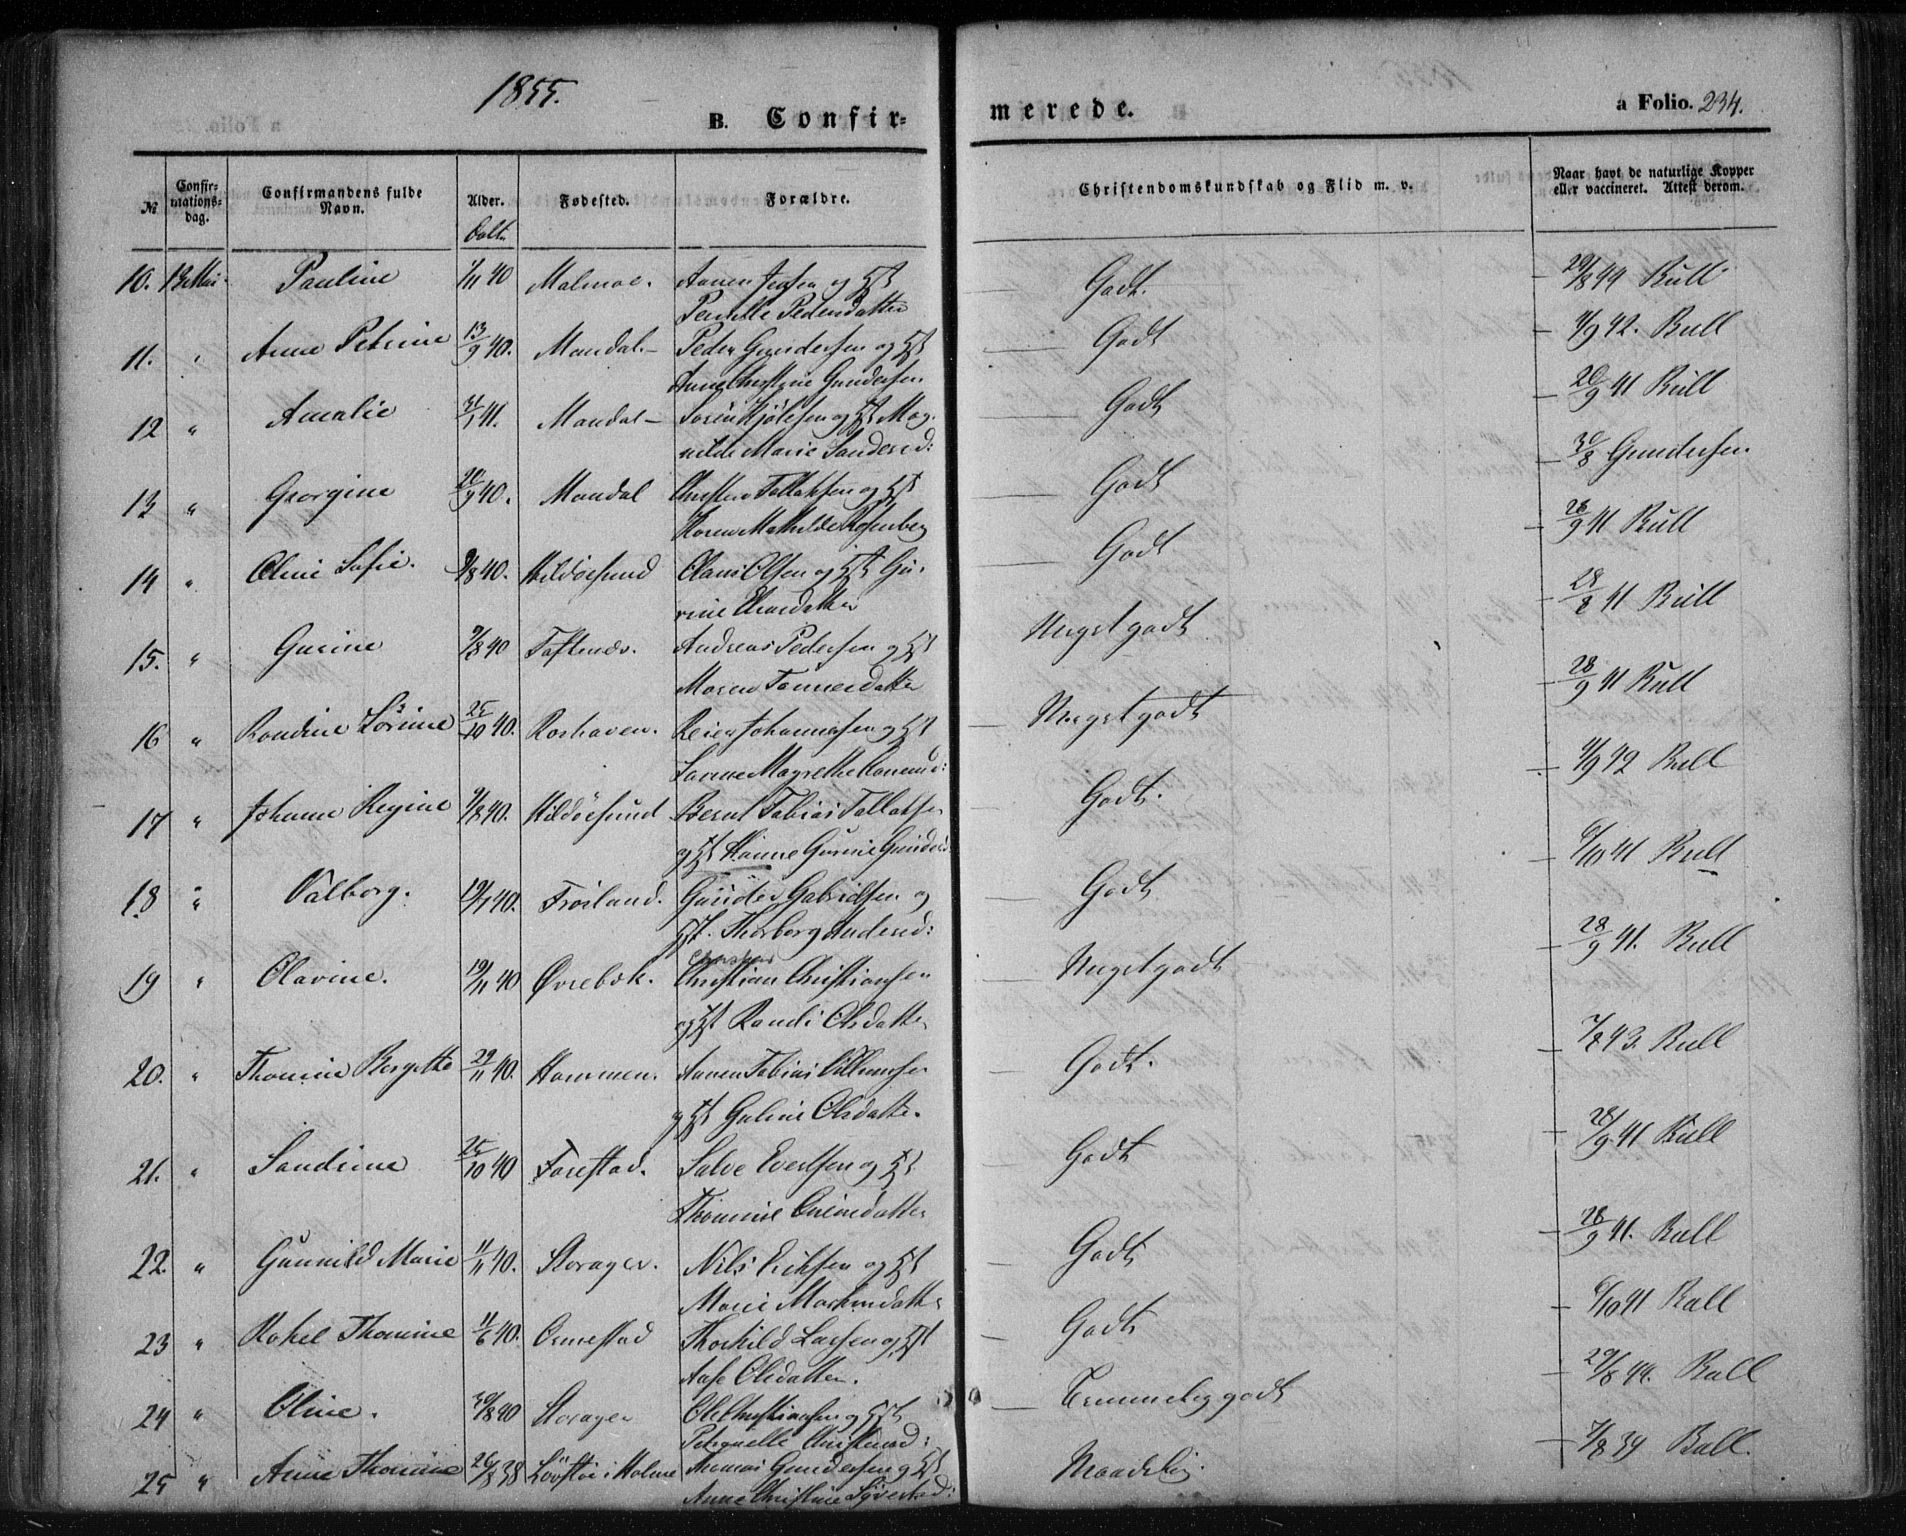 1855.
B. Confir- merede. a Folio. 234.
№ Confirmationsdag. Confirmandens fulde Navn. Alder. Fødested. Forældre. Christendomskundskab og Flid m. v. Naar havt de naturlige Kopper eller vaccineret. Attest derom.
10. 13 Mai Pauline 1/11 40 Malmøe. Aanen Jensen og Hst Godt. 29/8 44 Bull
Pernille Pedersdatter
11. " Anne Petrine 13/9 40. Mandal Peder Gundersen og Hst Godt 4/9 42. Bull
Anne Christine Gundersen
12 " Amalie 31/1 41. Mandal Godt 20/9 41 Bull
nilde Marie Sandersd:
13 " Georgine 20/9 40. Mandal Christen Tallaksen og Hst Godt 30/8 Gundersen
Karen Mathilde Rosenberg
14 " Oline Sofie. 9/8 40. Hildøesund Claus Olsen og Hst Gu- Godt 28/9 41 Bull
rine
15. " Gurine 9/8 40 Toftenæs. Andreas Pedersen og Hst Megetgodt 28/8 41 Bull
Maren Tønnesdatter
16 " Randine Sørine 25/10 40. Roshaven. Reier Johannessen og Hst Megetgodt 28/9 41 Bull
17 " Johanne Regine 9/8 40. Hildöesund Bernt Tobias Tallaksen Godt. 4/9 42 Bull
og Hst Hanne Gurine Gunders
18 " Valborg. 19/7 40. Frøsland. Gunder Gabrielsen og Godt 6/10 41 Bull
Hst. Thorborg Andersd:
19 " Olavine. 19/11 40 Øvrebøk. Christian Christiansen Megetgodt 28/9 41. Bull
og Hst Randi Olsdatter
20. " Thomine Bergette 29/11 40. Hommen. Aanen Tobias Villumsen Godt. 7/8 43. Bull
og Hst Guline Olsdatter
21. " Sandrine 25/10 40 Farestad. Salve Evertsen og Hst Godt 28/9 41 Bull
Thomine
22. " Gunnild Marie 11/11 40. Storager. Nils Eriksen og Hst Godt 28/9 41. Bull
Marie
23 " Rakel Thomine 11/6 40. Ormestad Thorkild Larsen og Hst Godt 6/10 41 Bull
Aase Olsdatter.
24 " Oline. 30/8 40 Storager Ole Christiansen og Hst Temmeliggodt 29/8 44. Bull
Petronelle
25 " Anne Thomine 26/8 38 Lövstöe i Holme Thomas Gundersen og Hst Maadelig. 7/8 39 Bull.
Anne Christine